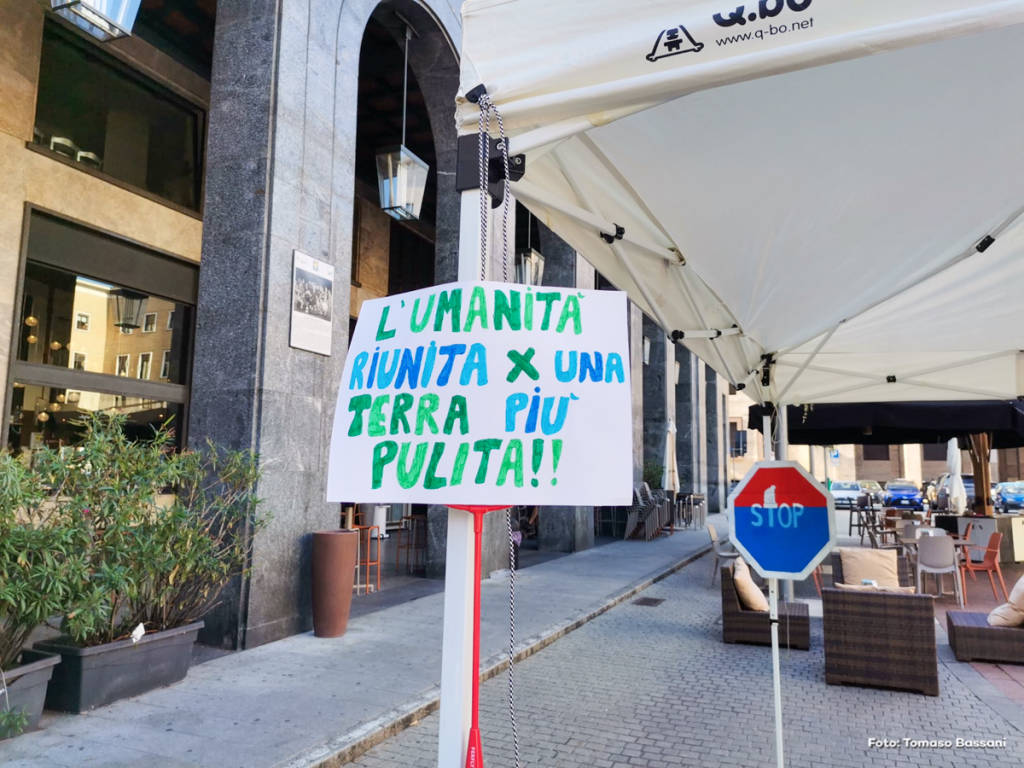 Q.bo
www.q-bo.net
L'UMANITÀ
RIUNITA X UNA
TERRA PIÙ
PULITA!!
STOP
Foto: Tomaso Bassani